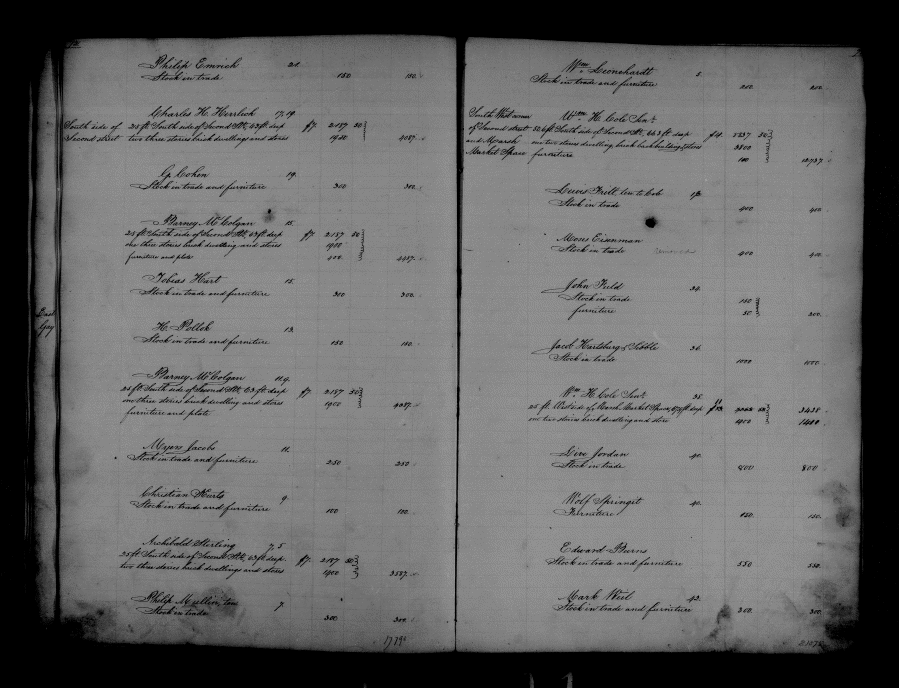 Philip Emrich 21.
Stock in trade 150 150
Charles H. Herrlich 17, 19.
South side of 25 ft. South side of Second St., 63 ft. deep f7. 2187 50
Second street two three stories brick dwellings and stores 1900 4087.
G. Cohen 19.
Stock in trade and furniture 300 300.
Barney McColgan 15.
25 ft. South side of Second St., 63 ft. deep f7. 2187 50
one three stories brick dwelling and stores 1900
furniture and plate 400. 4487.
Tobias Hart 15.
Stock in trade and furniture 300 300.
East
Gay
H. Pollok 13.
Stock in trade and furniture 150 150.
Barney McColgan 11.9.
25 ft. South side of Second St., 63 ft. deep f7. 2187 50
one three stories brick dwelling and store 1900 4087.
furniture and plate
Myers Jacobs 11.
Stock in trade and furniture 250 250
Christian Kurtz 9
Stock in trade and furniture 100 100.
Archibald Sterling 7, 5
25 ft. South side of Second St., 63 ft. deep f7. 2187 50
two three stories brick dwellings and stores 1900 3587.
Philip Mullin, ten 7.
Stock in trade 300 300.
Wm. Leonehardt 5.
Stock in trade and furniture 200 200.
South West corner Wm. H. Cole Senr.
of Second street South side of Second St., 66.3 ft. deep 5337 50
and Marsh on two stories dwelling, brick backbuilding, stores
Market Space furniture 100 12737
Lewis ten to Cole
Stock in trade 400 400.
Mones Eisenman
Stock in trade removed 400 400.
John Field 34.
Stock in trade 150
furniture 50 200.
Jacob Hartsburg & Sibble 36.
Stock in trade 1000 1000.
Wm. H. Cole Senr. 38.
25 ft. West side of Marsh Market Space, ft. deep 3438.
one two stories brick dwelling and store 1400 1400
Divo Jordan 40.
Stock in trade 800 800
Wolf Springet 40.
Furniture 150. 150.
Edward Burns
Stock in trade and furniture 550 550.
Mark Weil 42.
Stock in trade and furniture 300. 300.